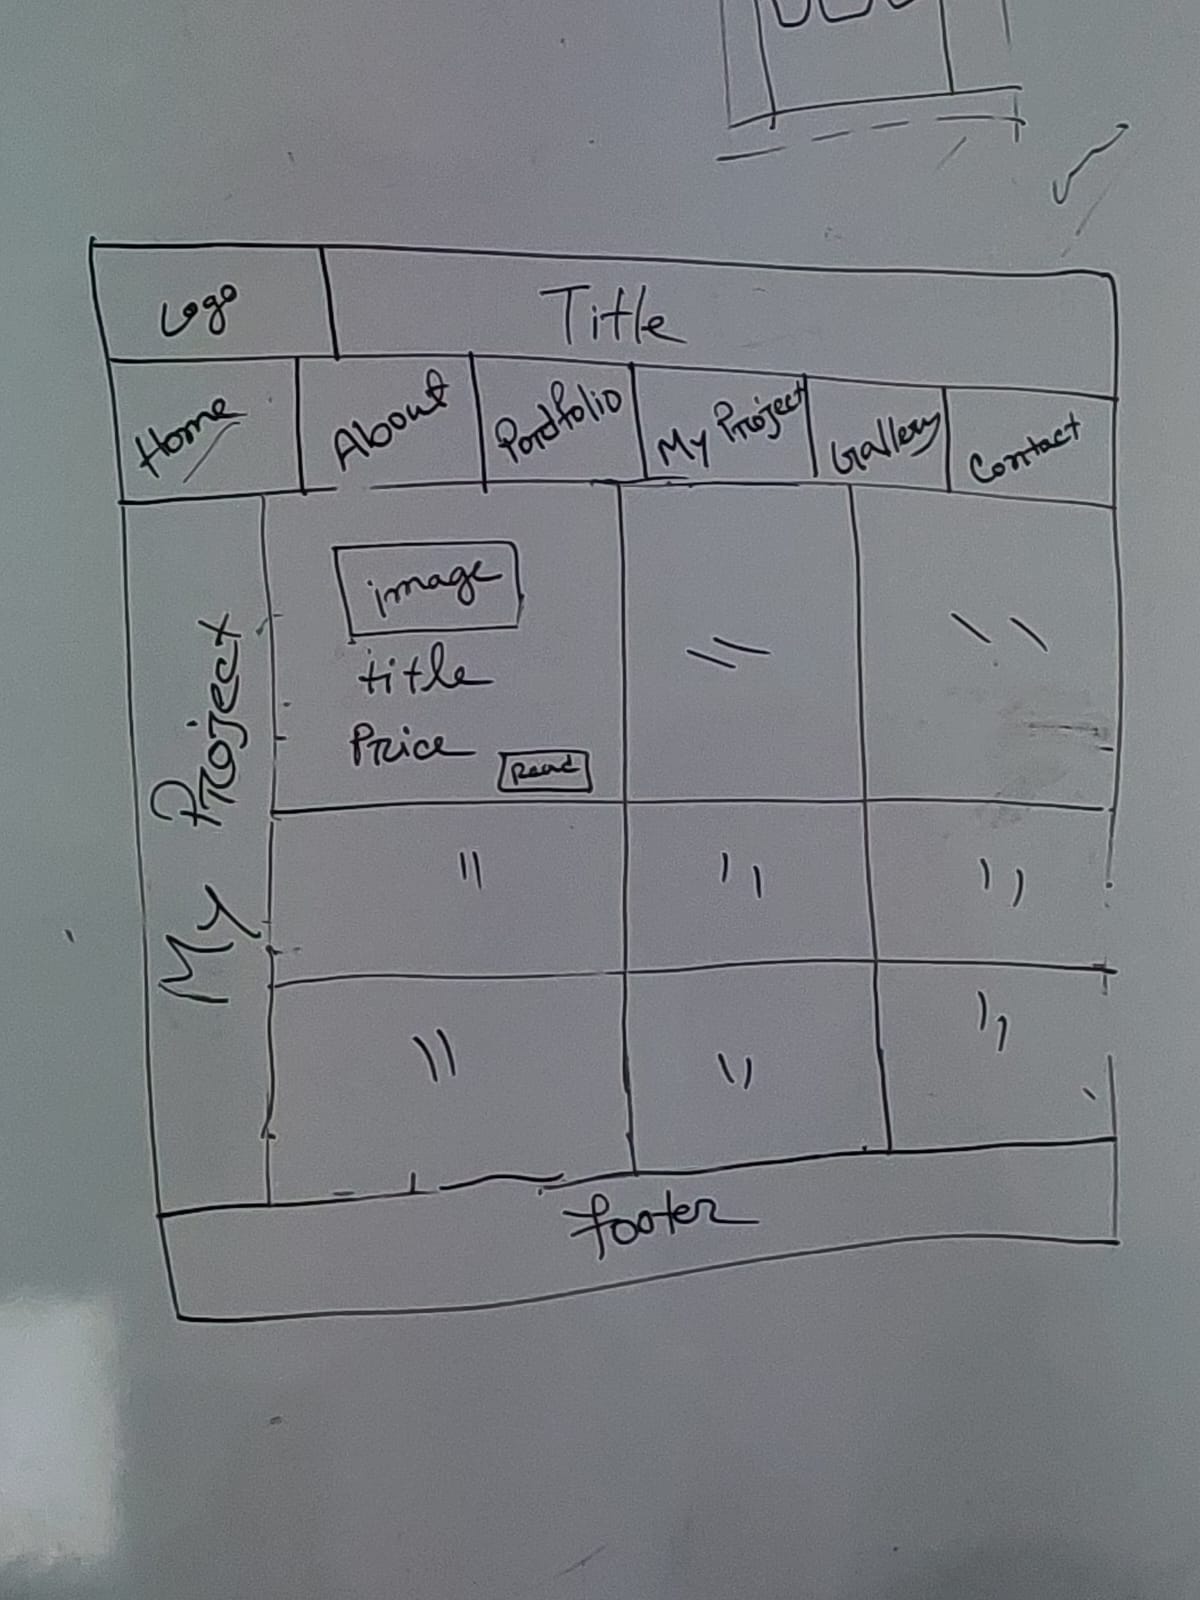 Logo
Title
Home
About
Portfolio
My Project
Gallery
Contact
My Project
image
title
Price
Read
footer